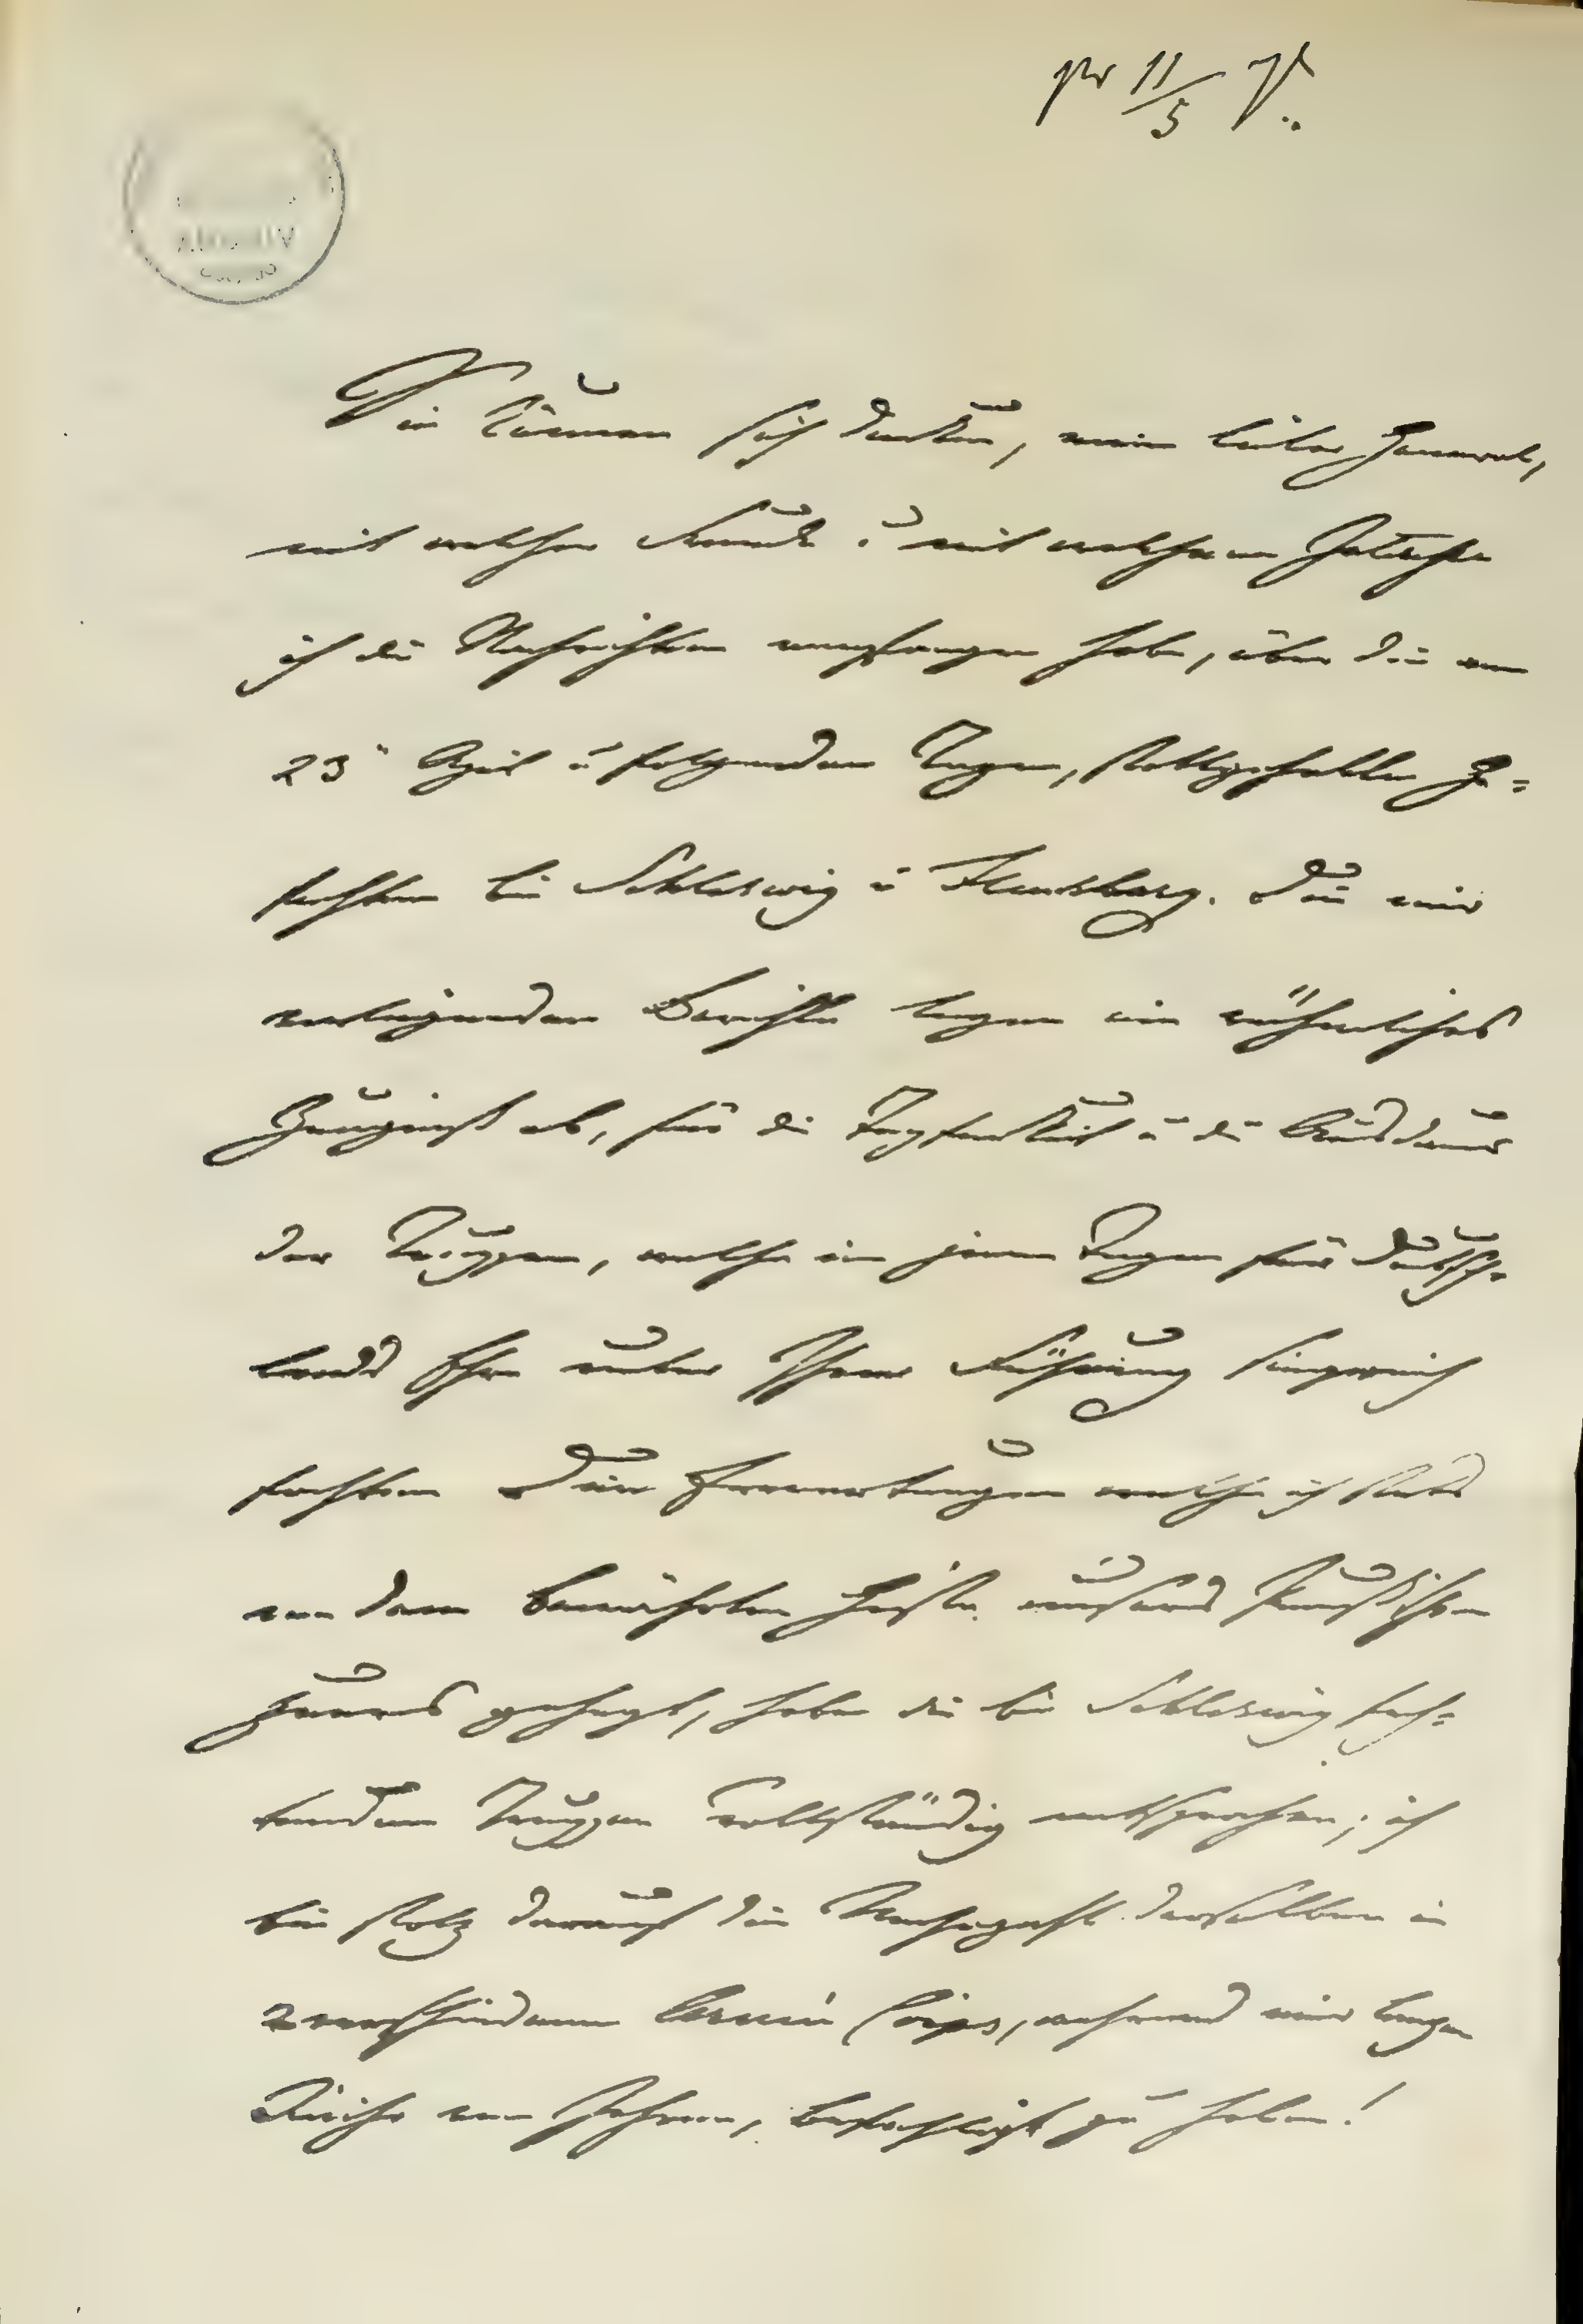 pr 11/5
Sie können sich denken, mein lieber General,
mit welcher Freude u mit welchem Interesse
ich die Nachrichten empfangen habe, über die am
23t April u folgenden Tagen, stattgehabten Ge=
fechten bei Schleswig u Flensburg. Die mir
vorliegenden Berichte legen ein rühmliches
Zeugniß ab, für die Tapferkeit u die Ausdauer
der Truppen, welche in jenen Tagen für Deutsch-
lands Ehre unter Ihrer Führung siegreich
fochten. Die Erwartungen welche ich stets
von dem bewährten Geiste unseres Preußischen
Heeres gehegt, haben die bei Schleswig fech=
tenden Truppen vollständig entsprochen; ich
bin stolz darauf die Mehrzahl derselben in
2 verschiedenen Armée Corps, während einer langen
Reihe von Jahren, befehligt zu haben!